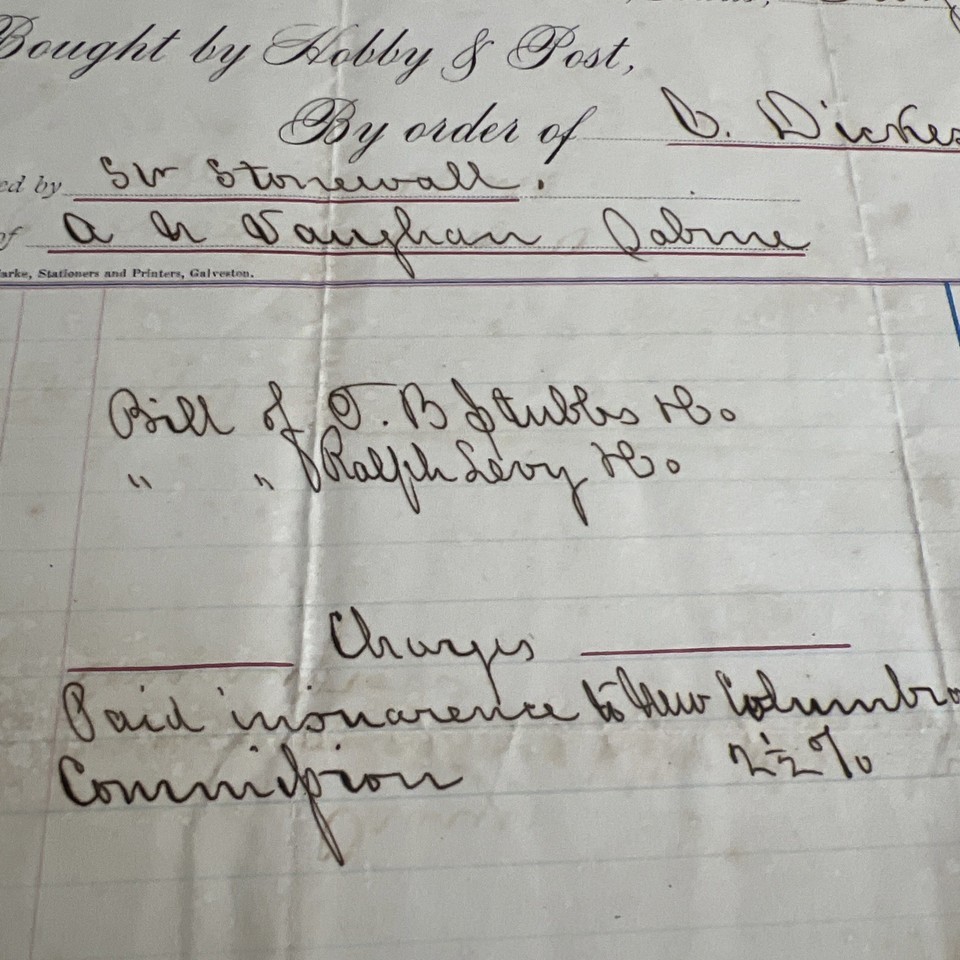 Bought by Hobby & Post,
By order of D. Dickes
ed by Str Stonewall.
of A N Vaughan Sabine
arke, Stationers and Printers, Galveston.
Bill of T. B Stubbs & Co
" " Ralph Levy & Co
Charges
Paid insurarence to New Columbia
Commission 2½%